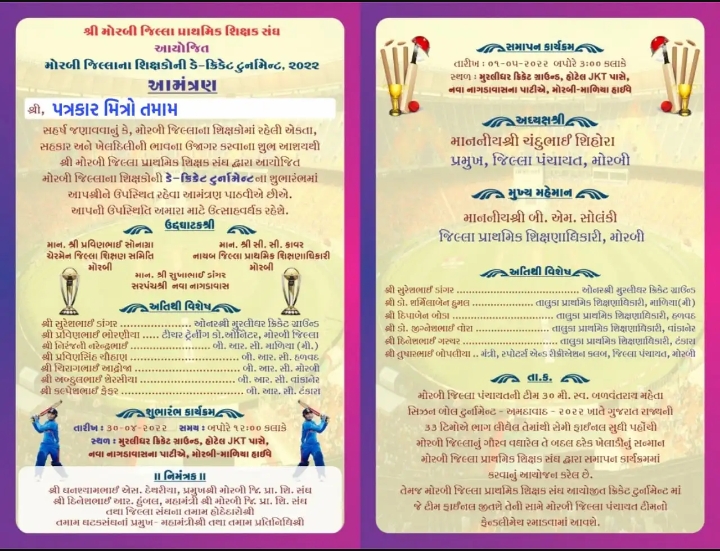 શ્રી મોરબી જિલ્લા પ્રાથમિક શિક્ષક સંઘ
આયોજિત
મોરબી જિલ્લાના શિક્ષકોની ડે-ક્રિકેટ ટુર્નામેન્ટ, ૨૦૨૨
આમંત્રણ
શ્રી, પત્રકાર મિત્રો તમામ
સહર્ષ જણાવવાનું કે, મોરબી જિલ્લાના શિક્ષકોમાં રહેલી એકતા,
સહકાર અને ખેલદિલીની ભાવના ઉજાગર કરવાના શુભ આશયથી
શ્રી મોરબી જિલ્લા પ્રાથમિક શિક્ષક સંઘ દ્વારા આયોજિત
મોરબી જિલ્લાના શિક્ષકોની ડે-ક્રિકેટ ટુર્નામેન્ટના શુભારંભમાં
આપશ્રીને ઉપસ્થિત રહેવા આમંત્રણ પાઠવીએ છીએ.
આપની ઉપસ્થિતિ અમારા માટે ઉત્સાહવર્ધક રહેશે.
ઉદ્ઘાટકશ્રી
માન. શ્રી પ્રવિણભાઈ સોનાગ્રા
ચેરમેન જિલ્લા શિક્ષણ સમિતિ
મોરબી
માન. શ્રી સી. સી. કાવર
નાયબ જિલ્લા પ્રાથમિક શિક્ષણાધિકારી
મોરબી
માન. શ્રી સુખાભાઈ ડાંગર
સરપંચશ્રી નવા નાગડાવાસ
અતિથી વિશેષ
શ્રી સુરેશભાઈ ડાંગર .................. ઓનરશ્રી મુરલીધર ક્રિકેટ ગ્રાઉન્ડ
શ્રી પ્રવિણભાઈ ભોરણીયા ..... ટીચર ટ્રેનીંગ કો.ઓર્નિટર, મોરબી જિલ્લા
શ્રી નિરંજની નરેન્દ્રભાઈ ........................ બી. આર. સી. માળિયા (મી.)
શ્રી પ્રવિણસિંહ ચૌહાણ ............................... બી. આર. સી. હળવદ
શ્રી ચિરાગભાઈ આદ્રોજા ............................... બી. આર. સી. મોરબી
શ્રી અબ્દુલભાઈ શેરસીયા ......................... બી. આર. સી. વાંકાનેર
શ્રી કલ્પેશભાઈ ફેફર .................................... બી. આર. સી. ટંકારા
શુભારંભ કાર્યક્રમ
તારીખ : ૩૦-૦૪-૨૦૨૨ સમય : બપોરે ૧૨:૦૦ કલાકે
સ્થળ : મુરલીધર ક્રિકેટ ગ્રાઉન્ડ, હોટેલ JKT પાસે,
નવા નાગડાવાસના પાટીએ, મોરબી-માળિયા હાઈવે
॥ નિમંત્રક ॥
શ્રી ઘનશ્યામભાઈ એસ. દેથરીયા, પ્રમુખશ્રી મોરબી જિ. પ્રા. શિ. સંઘ
શ્રી દિનેશભાઈ આર. હુંબલ, મહામંત્રી શ્રી મોરબી જિ. પ્રા. શિ. સંઘ
તથા જિલ્લા સંઘના તમામ હોદ્દેદારોશ્રી
તમામ ઘટકસંઘનાં પ્રમુખ- મહામંત્રીશ્રી તથા તમામ પ્રતિનિધિશ્રી
સમાપન કાર્યક્રમ
તારીખ : ૦૧-૦૫-૨૦૨૨ બપોરે ૩:૦૦ કલાકે
સ્થળ : મુરલીધર ક્રિકેટ ગ્રાઉન્ડ, હોટેલ JKT પાસે,
નવા નાગડાવાસના પાટીએ, મોરબી-માળિયા હાઈવે
અધ્યક્ષશ્રી
માનનીયશ્રી ચંદુભાઈ શિહોરા
પ્રમુખ, જિલ્લા પંચાયત, મોરબી
મુખ્ય મહેમાન
માનનીયશ્રી બી. એમ. સોલંકી
જિલ્લા પ્રાથમિક શિક્ષણાધિકારી, મોરબી
અતિથી વિશેષ
શ્રી સુરેશભાઈ ડાંગર ................................ ઓનરશ્રી મુરલીધર ક્રિકેટ ગ્રાઉન્ડ
શ્રી ડો. શર્મિલાબેન હુમલ ................ તાલુકા પ્રાથમિક શિક્ષણાધિકારી, માળિયા(મી)
શ્રી દિપાબેન બોડા ............................ તાલુકા પ્રાથમિક શિક્ષણાધિકારી, હળવદ
શ્રી ડો. જીગ્નેશભાઈ વોરા .................. તાલુકા પ્રાથમિક શિક્ષણાધિકારી, વાંકાનેર
શ્રી દિનેશભાઈ ગરચર ........................ તાલુકા પ્રાથમિક શિક્ષણાધિકારી, ટંકારા
શ્રી તુષારભાઈ બોપલીયા .. મંત્રી, સ્પોર્ટસ એન્ડ રીક્રીએશન કલબ, જિલ્લા પંચાયત, મોરબી
તા.ક.
મોરબી જિલ્લા પંચાયતની ટીમ ૩૦ મી. સ્વ. બળવંતરાય મહેતા
સિઝન બોલ ટુર્નામેન્ટ - અમદાવાદ - ૨૦૨૨ ખાતે ગુજરાત રાજ્યની
૩૩ ટિમોએ ભાગ લીધેલ તેમાંથી સેમી ફાઈનલ સુધી પહોંચી
મોરબી જિલ્લાનું ગૌરવ વધારેલ તે બદલ દરેક ખેલાડીનું સન્માન
મોરબી જિલ્લા પ્રાથમિક શિક્ષક સંઘ દ્વારા સમાપન કાર્યક્રમમાં
કરવાનું આયોજન કરેલ છે.
તેમજ મોરબી જિલ્લા પ્રાથમિક શિક્ષક સંઘ આયોજીત ક્રિકેટ ટુર્નામેન્ટ માં
જે ટીમ ફાઈનલ જીતશે તેની સામે મોરબી જિલ્લા પંચાયત ટીમનો
ફેન્ડલીમેચ રમાડવામાં આવશે.